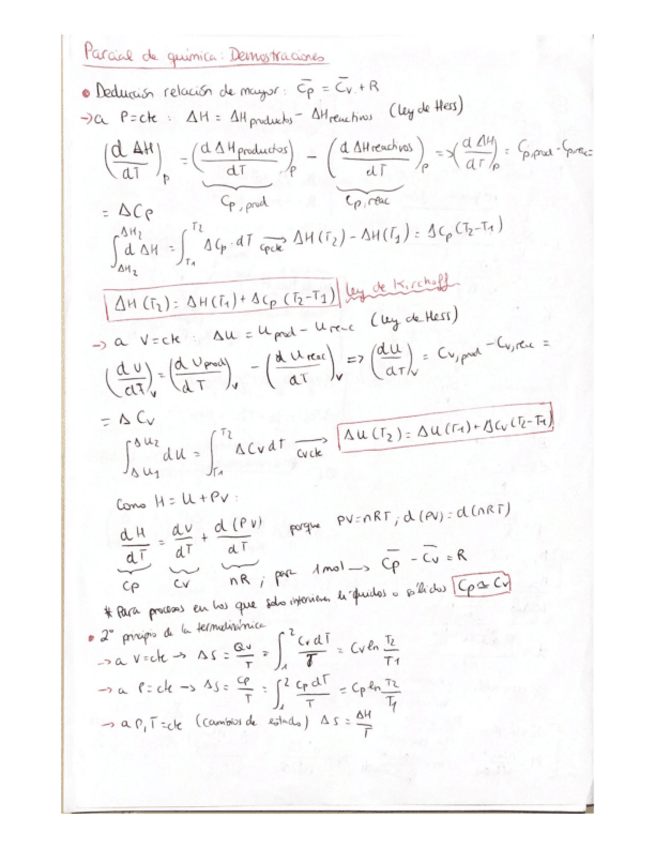 Parcial de química: Demostraciones
• Deducción relación de mayer: C̅p = C̅v + R
→ a P=cte : ΔH = ΔHproductos - ΔHreactivos (ley de Hess)
(d ΔH/dT)p = (d ΔHproductos/dT)p - (d ΔHreactivos/dT)p => (d ΔH/dT)p = Cp,prod - Cp,reac =
Cp,prod Cp,reac
= ΔCp
∫_ΔH2^ΔH2 d ΔH = ∫_T1^T2 ΔCp·dT →cpcte ΔH(T2) - ΔH(T1) = ΔCp(T2-T1)
ΔH(T2) = ΔH(T1) + ΔCp (T2-T1) Ley de Kirchoff
→ a V=cte : ΔU = Uprod - Ureac (ley de Hess)
(d U/dT)v = (d Uprod/dT)v - (d Ureac/dT)v => (dU/dT)v = Cv,prod - Cv,reac =
= Δ Cv
∫_ΔU1^ΔU2 dU = ∫_T1^T2 ΔCv dT →Cvcte ΔU(T2) = ΔU(T1) + ΔCv(T2-T1)
Como H = U + PV :
dH/dT = dU/dT + d(PV)/dT porque PV=nRT ; d(PV) = d(nRT)
Cp Cv nR ; para 1mol → C̅p - C̅v = R
* Para procesos en los que solo intervienen líquidos o sólidos Cp ≃ Cv
• 2º principio de la termodinámica
→ a V=cte → ΔS = Qv/T = ∫_1^2 Cv dT/T = Cv ln T2/T1
→ a P=cte → ΔS = Cp/T = ∫_1^2 Cp dT/T = Cp ln T2/T1
→ a P,T=cte (cambios de estado) ΔS = ΔH/T